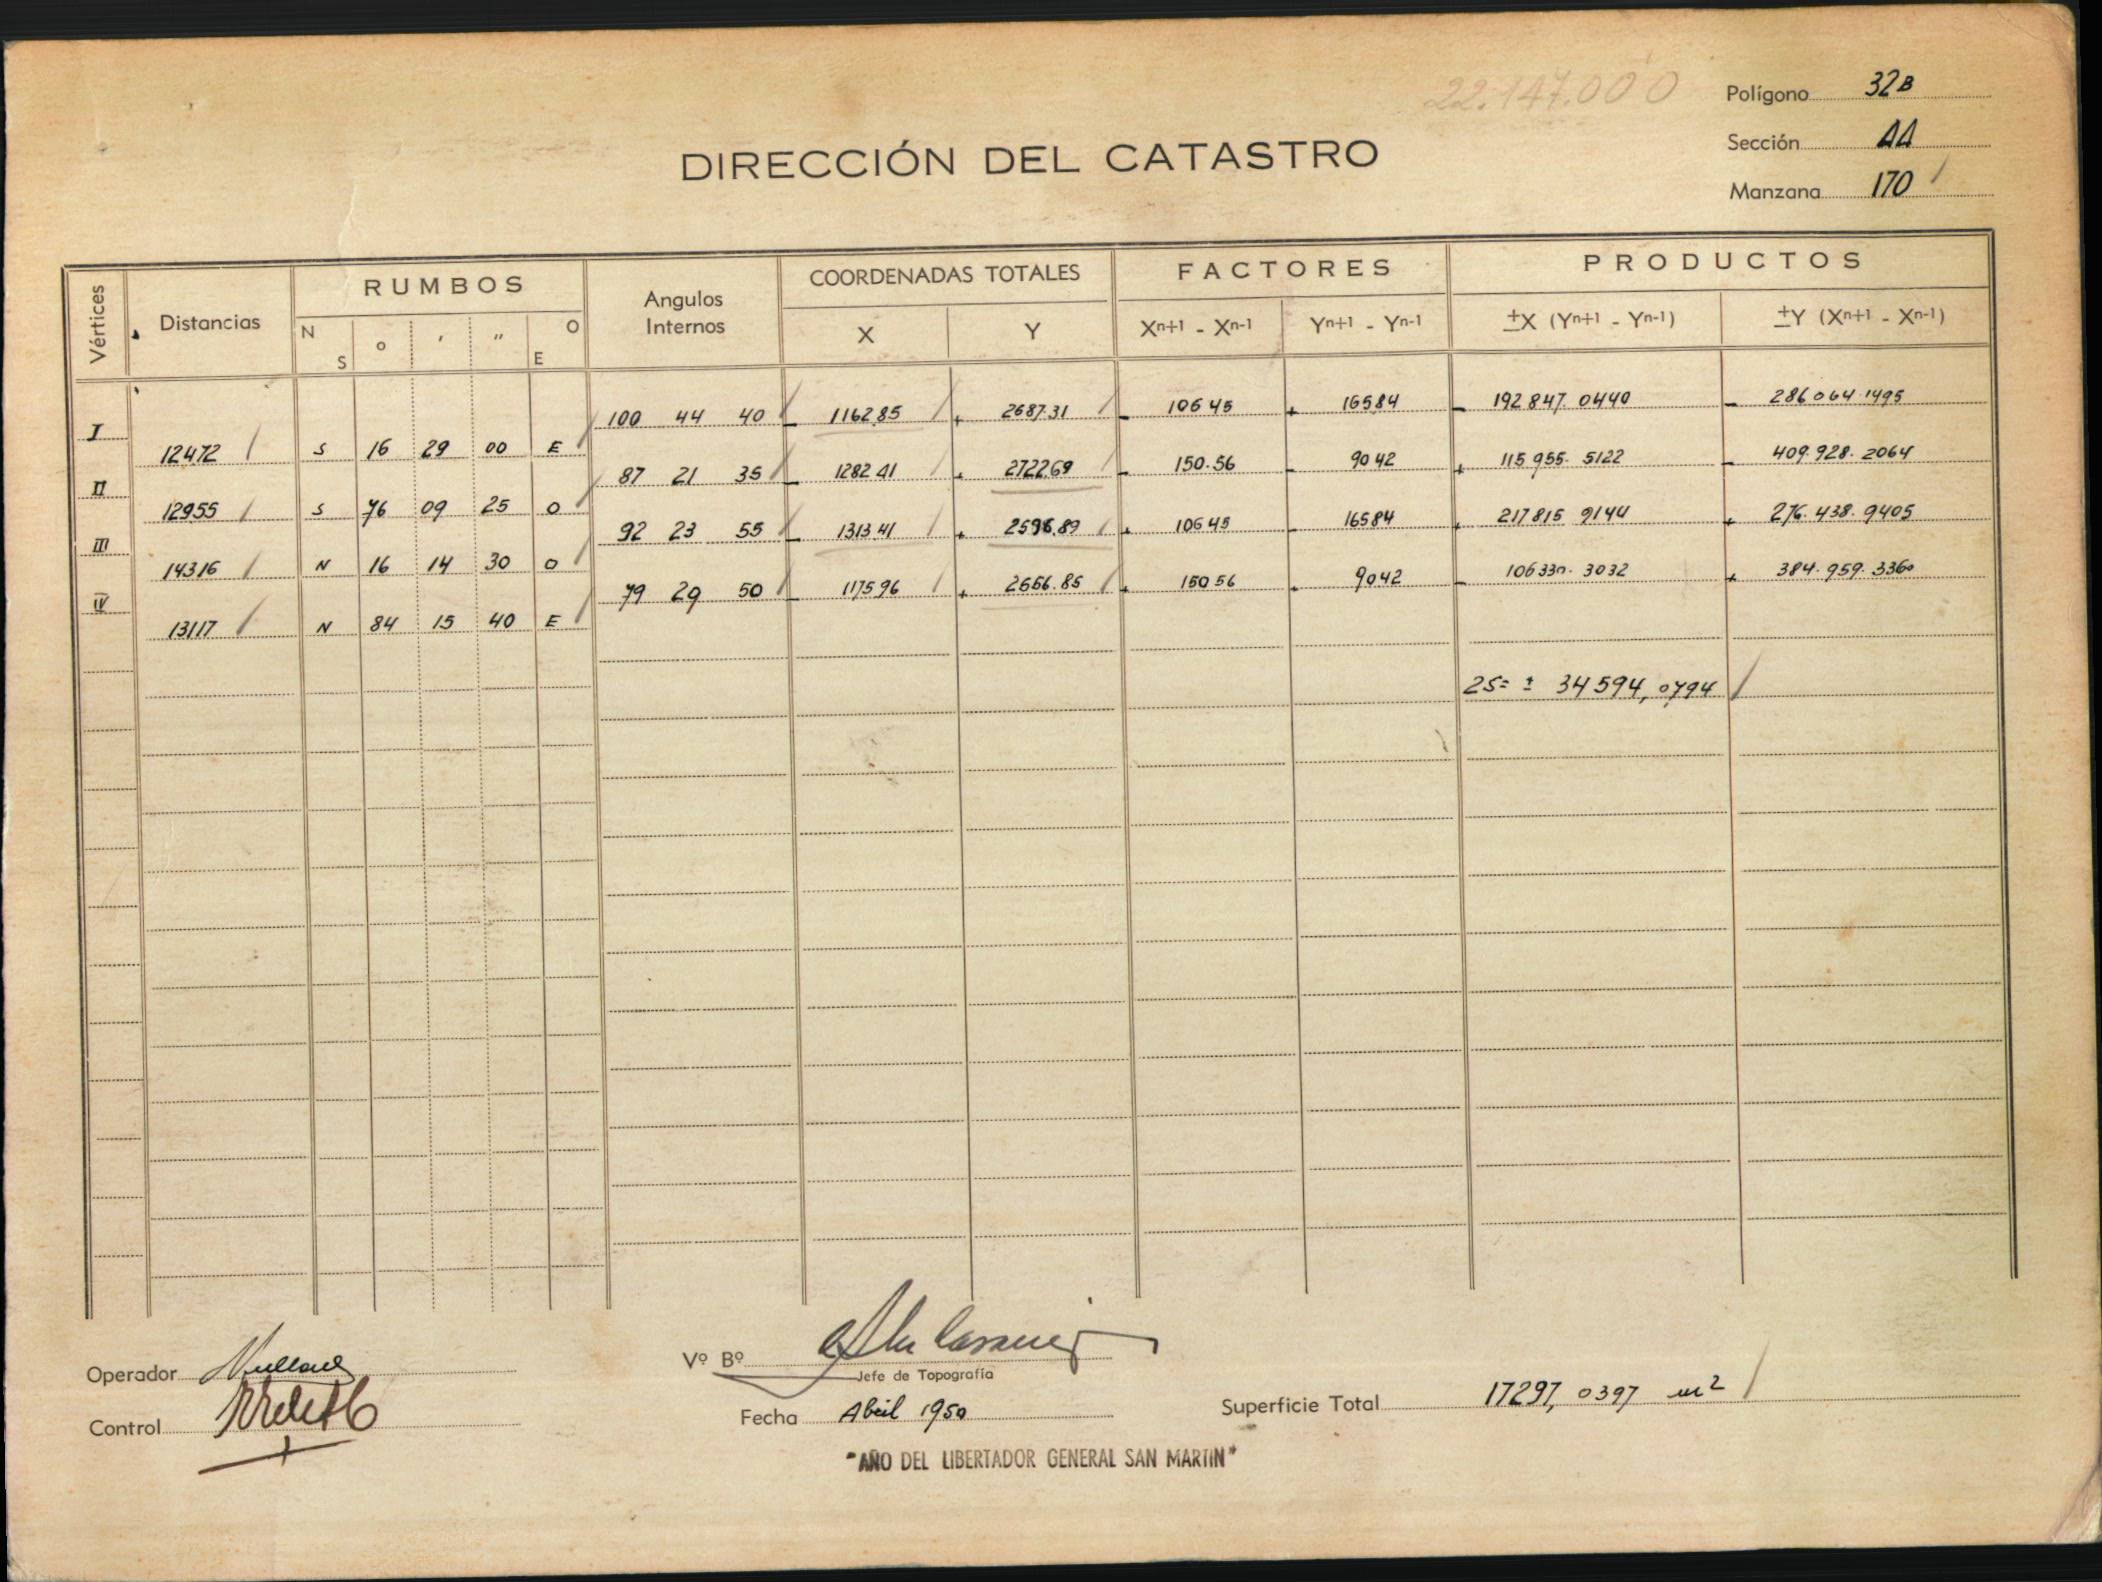 22.147.000
Polígono 32B
Sección AA
Manzana 170
DIRECCIÓN DEL CATASTRO
Vértices Distancias RUMBOS Angulos Internos COORDENADAS TOTALES FACTORES PRODUCTOS
N S ° ' " O E X Y Xn+1 - Xn-1 Yn+1 - Yn-1 ±X (Yn+1 - Yn-1) ±Y (Xn+1 - Xn-1)
I 100 44 40 - 1162.85 + 2687.31 - 106 45 + 165.84 - 192 847. 0440 - 286 064.1495
12472 S 16 29 00 E
II 87 21 35 - 1282 41 + 2722.69 - 150.56 - 90 42 + 115 955. 5122 - 409.928.2064
12955 S 76 09 25 O
III 92 23 55 - 1313 41 + 2596.89 + 106 45 - 165 84 + 217 815 9144 + 276.438.9405
14316 N 16 14 30 O
IV 79 29 50 - 1175 96 + 2556.85 + 150 56 + 90 42 - 106 330. 3032 + 384.959.3360
13117 N 84 15 40 E
2S= ± 34 594, 0794
Operador
Control
Vº Bº
Jefe de Topografía
Fecha Abril 1950
Superficie Total 17297, 0397 m2
"AÑO DEL LIBERTADOR GENERAL SAN MARTIN"